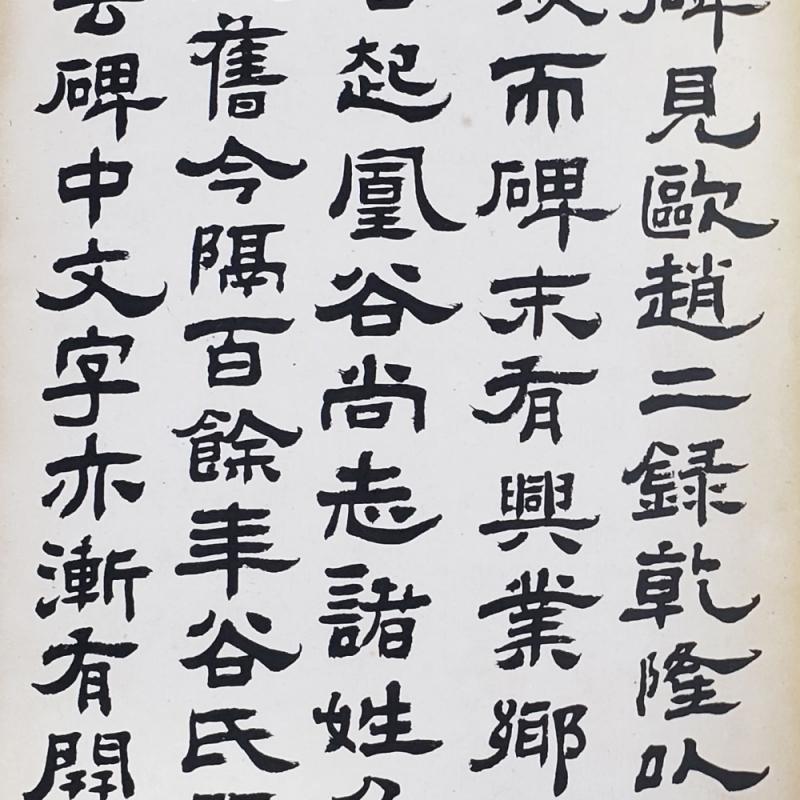 碑見歐趙二錄乾隆㕥
而碑末有興業鄉
起凰谷尚志諸姓
舊今隔百餘年谷氏
碑中文字亦漸有開